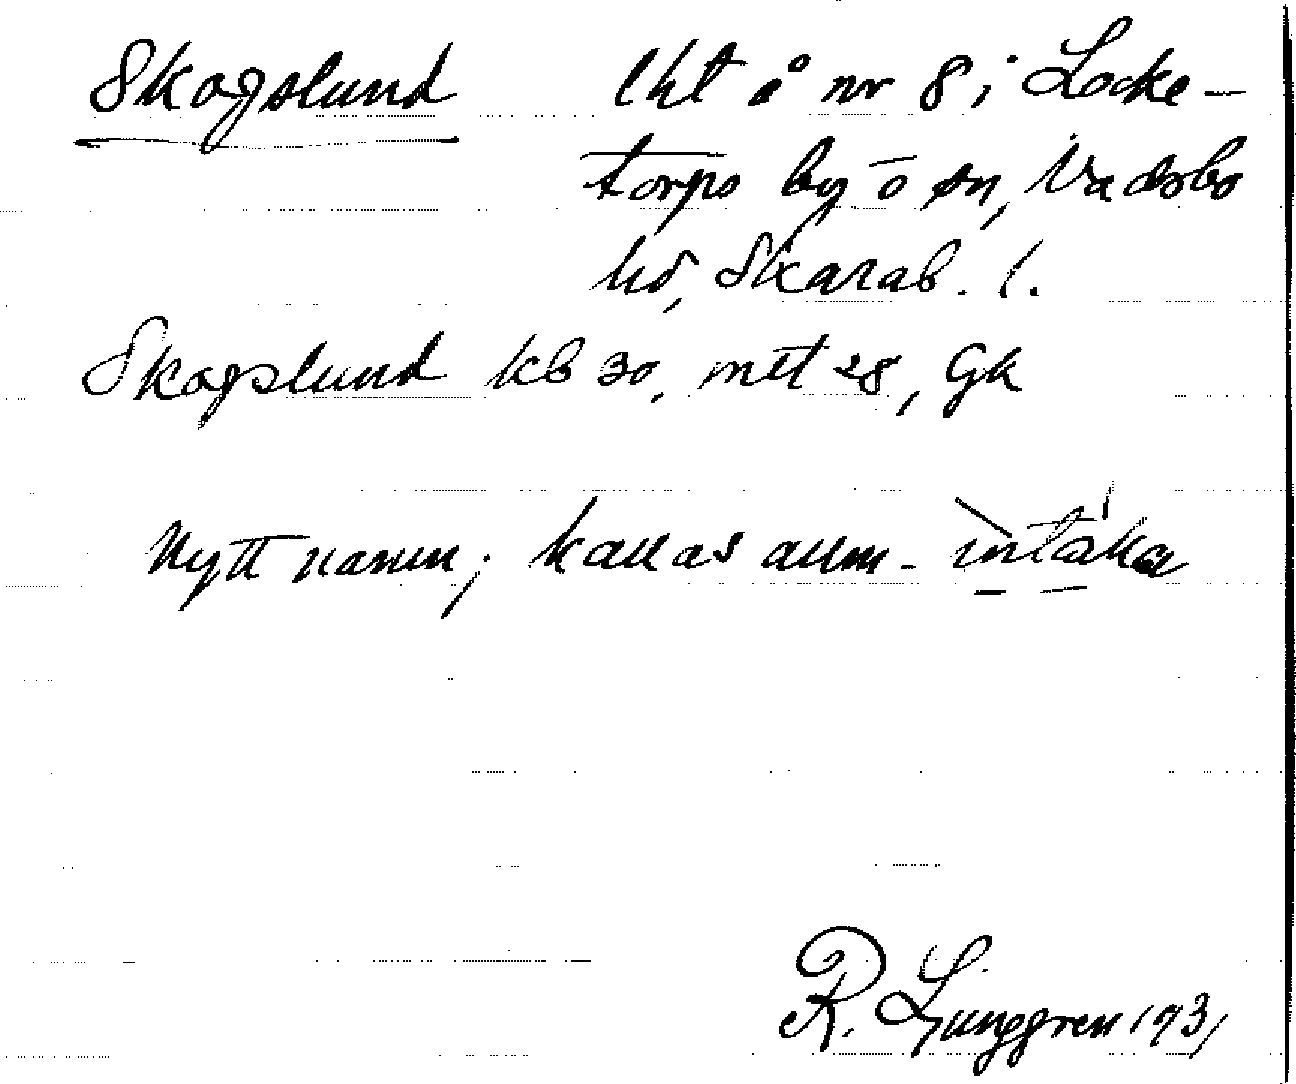 Skogslund lht å nr 8 i Locke-
torps by o sn, Vadsbo
hd, Skarab. l.
Skogslund kb 30, mtl 28, Gk
Nytt namn; kallas allm. intáka
R. Ljunggren 1931